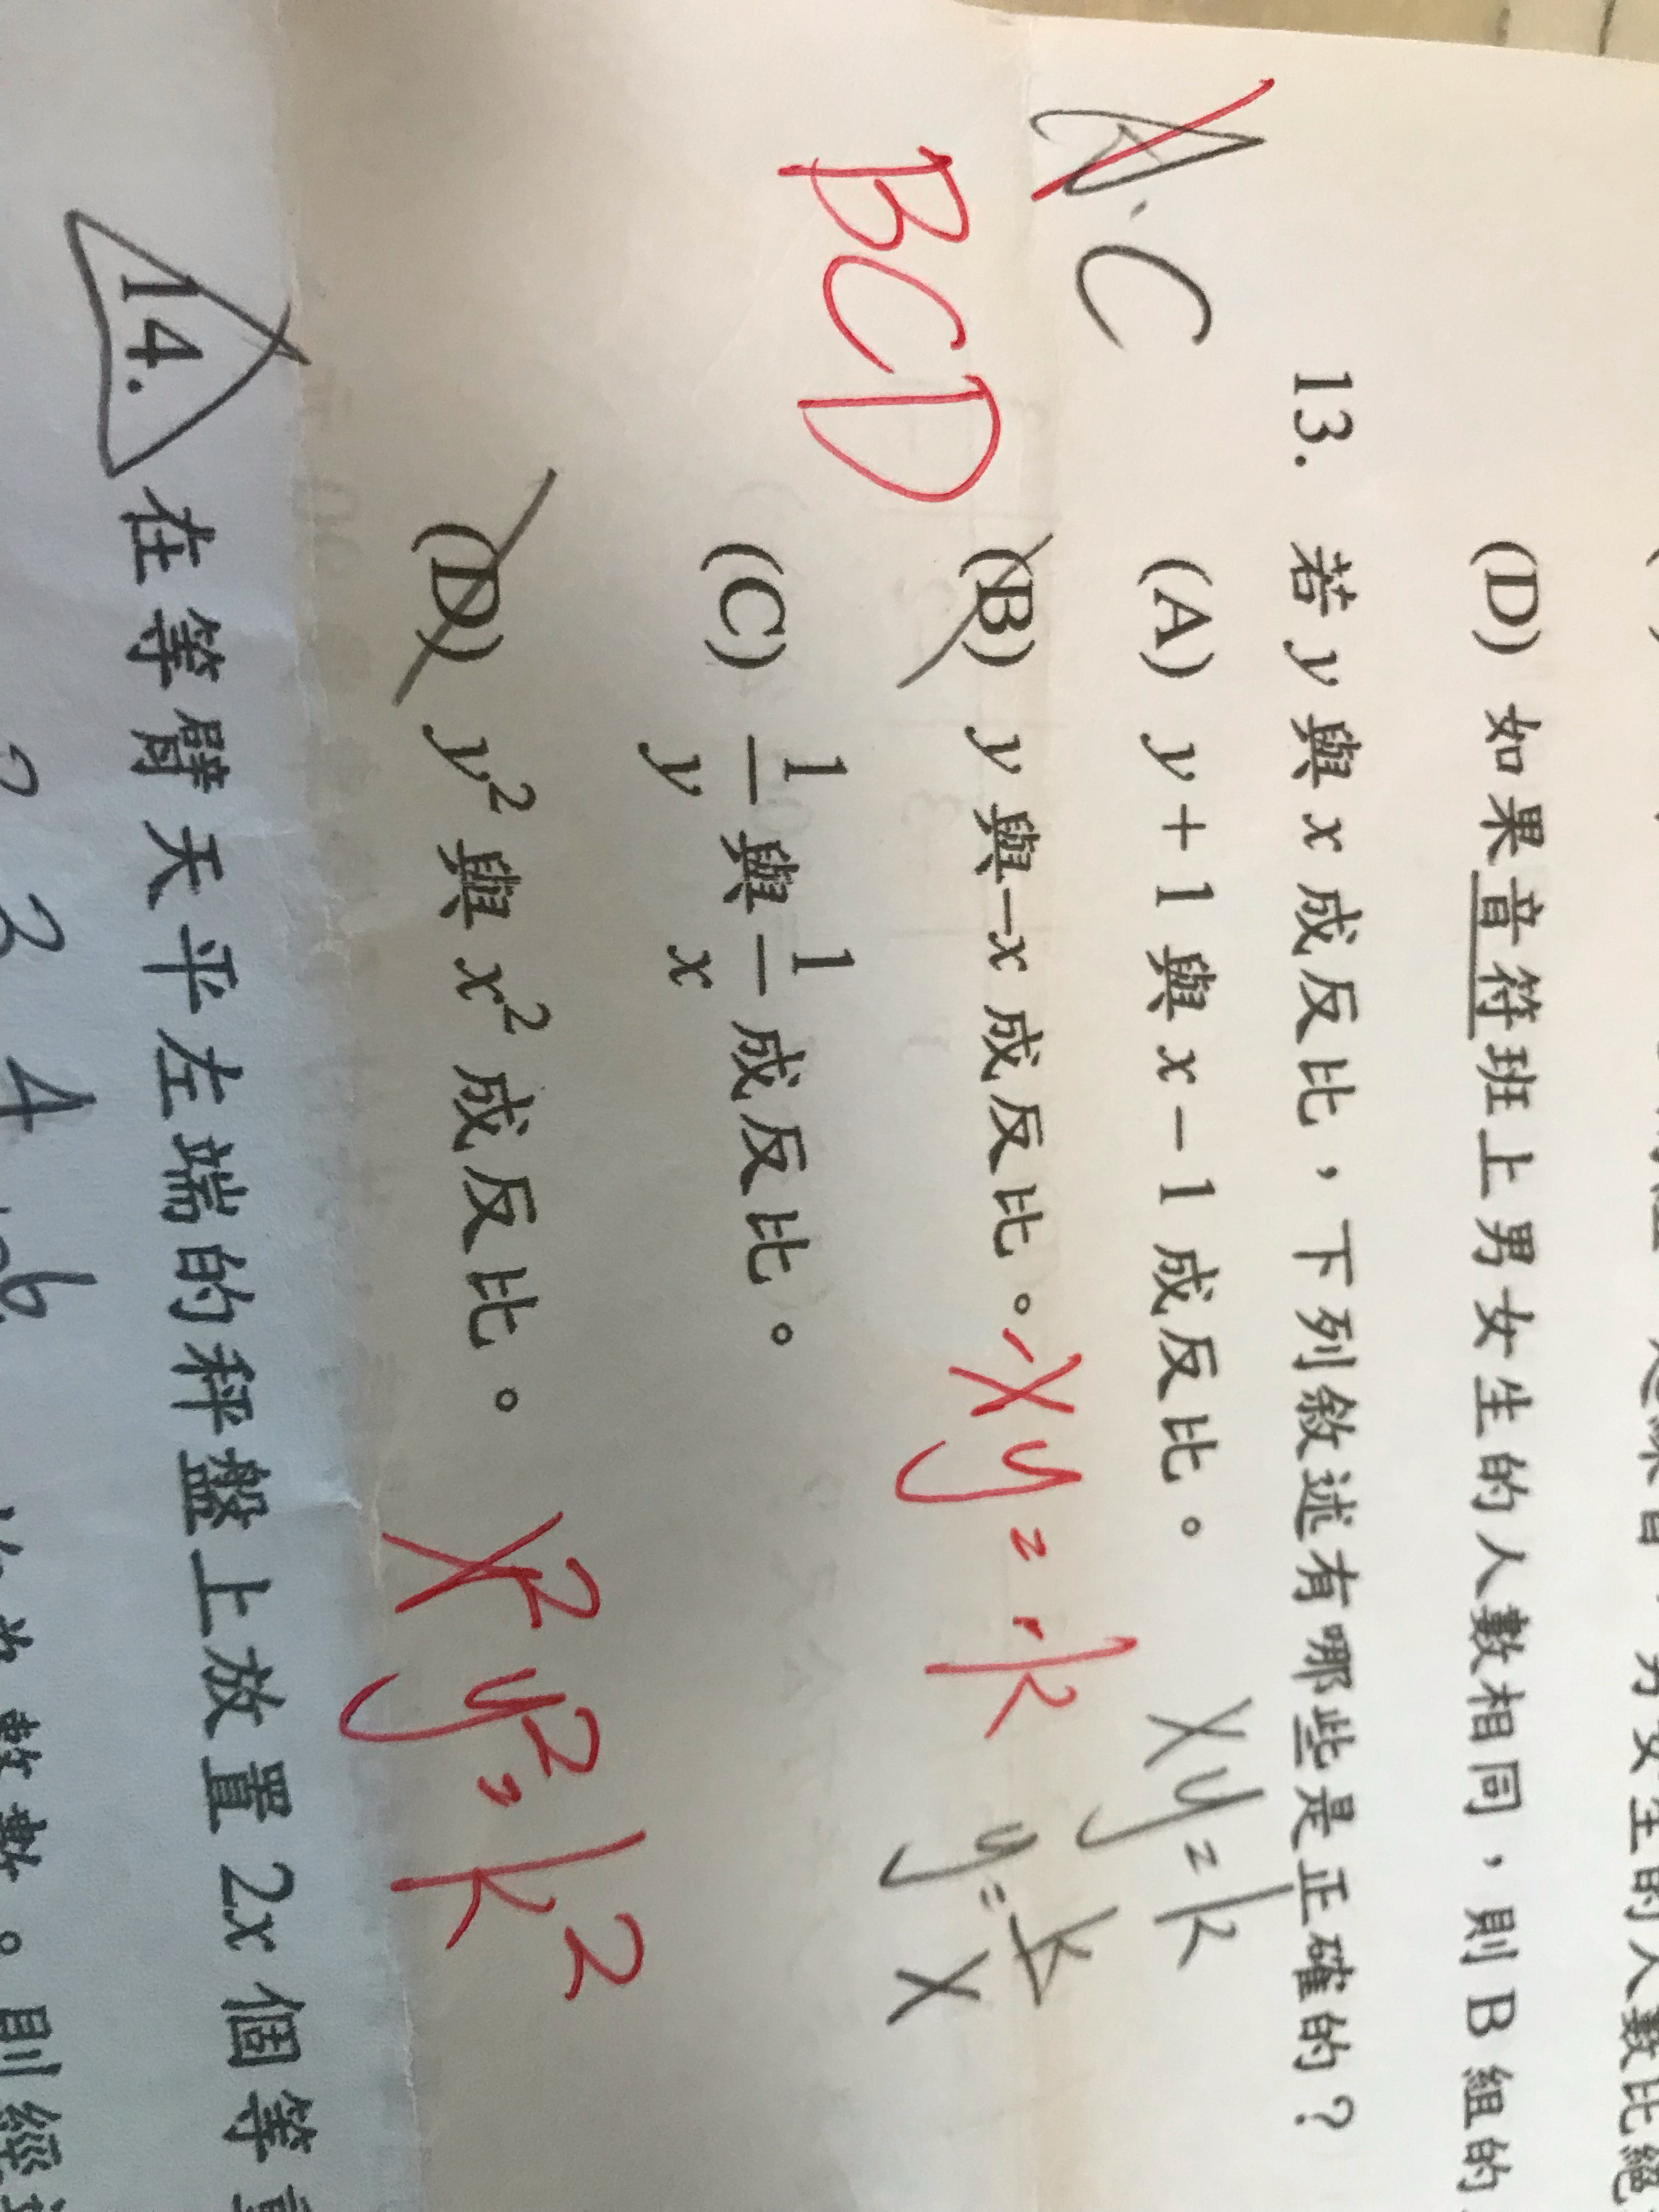 (D) 如果音符班上男女生的人數相同，則B組的
A.C
13. 若 y 與 x 成反比，下列敘述有哪些是正確的？
(A) y+1 與 x-1 成反比。
xy=k
y=k/x
BCD
(B) y 與 -x 成反比。 -xy=-k
(C) 1/y 與 1/x 成反比。
(D) y² 與 x² 成反比。 x²y²=k²
14. 在等臂天平左端的秤盤上放置 2x 個等